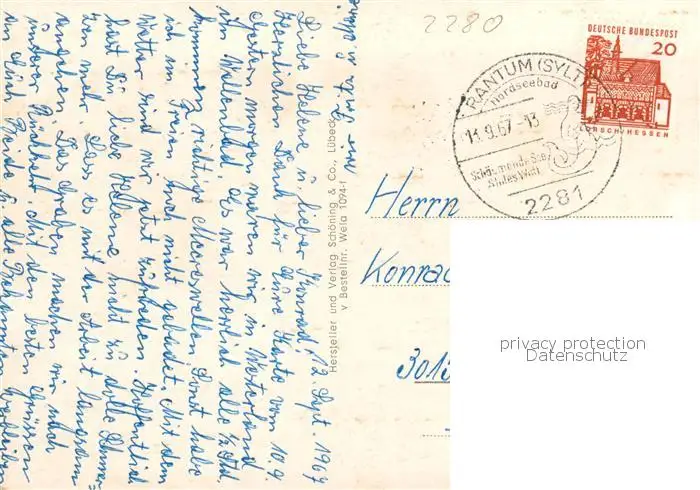 Liebe Helene u. lieber Konrad! 12. Sept. 1967
Herzlichen Dank für Eure Karte vom 10.9.
Gestern morgen waren wir in Westerland
im Wellenbad, es war herrlich alle ½ Std.
kommen richtige Meereswellen. Sonst habe
ich im Freien noch nicht gebadet. Mit dem
Wetter sind wir jetzt zufrieden. Hoffentlich
hast Du liebe Helene nicht zu dolle Schmer-
zen mehr. Lass es mit der Arbeit langsam
angehen. Das machen wir nach
unserer Rückkehr. Mit den besten Grüssen
an Euch Beide u. alle
Hersteller und Verlag Schöning & Co., Lübeck
v Bestellnr. Wela 1094-f
2280
DEUTSCHE BUNDESPOST
20
LORSCH/HESSEN
RANTUM (SYLT)
Nordseebad
13.9.67-13
Schäumende See
2281
Herrn
Konrad
3015
privacy protection
Datenschutz